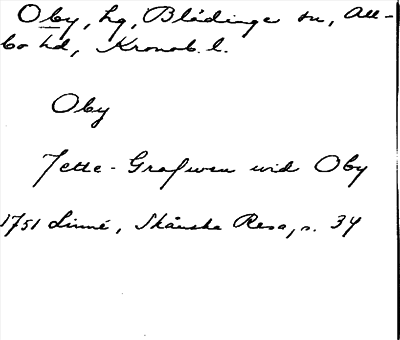 Oby, hg, Blädinge sn, All-
bo hd, Kronob. l.
Oby
Jette-Grafwen wid Oby
1751 Linné, Skånska Resa, s. 34